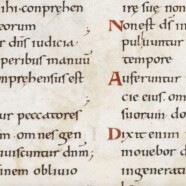 ihi·conprehen
eorum
ur dn̄s iudicia
peribus manuū
nprehensus est
ur peccatores
m·omnes gen
uiscuntur dn̄m;
inem obliuio
ire suę non
Non est ds̄ in
pulluuntur
tempore
Auferuntur
cie eius·om
suorum do
Dixit enim
mouebor de
ingenerat